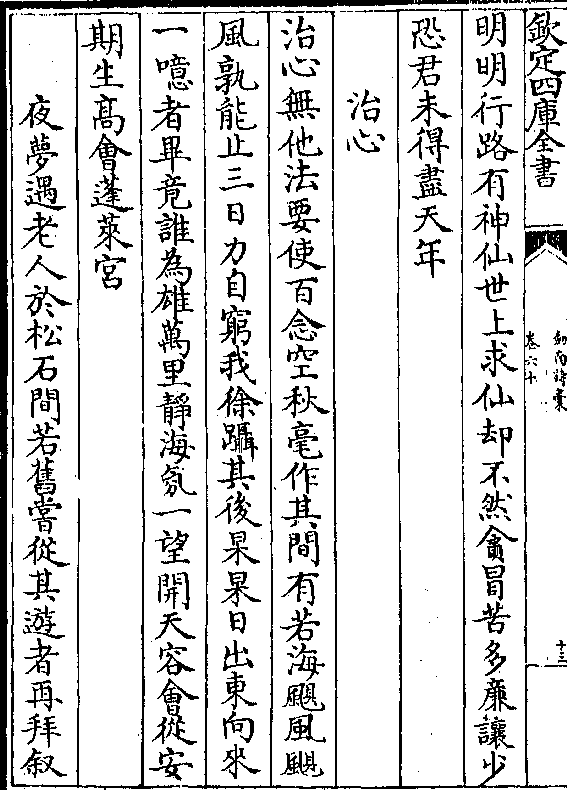 欽定四庫全書
劍南詩稾
卷六十
十三
明明行路有神仙世上求仙却不然貪冒苦多廉讓少
恐君未得盡天年
治心
治心無他法要使百念空秋毫作其間有若海颶風颶
風孰能止三日力自窮我徐躡其後杲杲日出東向來
一噫者畢竟誰為雄萬里靜海氛一望開天容會從安
期生髙會蓬萊宮
夜夢遇老人於松石間若舊嘗從其遊者再拜叙